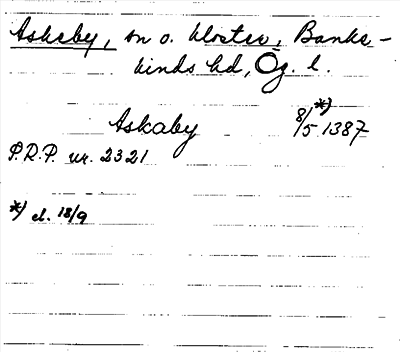 Askeby, sn o. kloster, Banke-
kinds hd, Ög. l.
Askaby 8/5 *) 1387
P.R.P. nr. 2321
*) el. 18/9